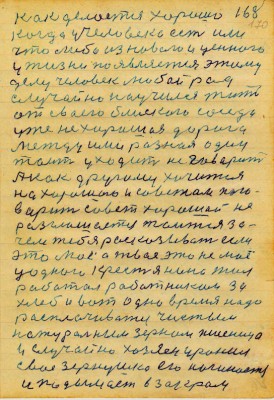 как делается хорошо 168
когда у человека есть или
что либо из нового и ценного
у жизни появляется этому
делу человек любой рад
случайно научился жить
от своего близкого соседа
уже не хорошая дорога
между ими разная один
таит уходит не говорит
А как другому хочится
на хорошого и советам
варит совет хорошай не
разглашается таится за-
чем тебя росказывать если
это мое а твае это не маё
у одного крестянина жил
работал работником за
хлеб и вот одно время надо
расплачиватся чистым
натуралным зерном пшеница
и случайно хозяен уронил
свое зернушко его
и подымает в